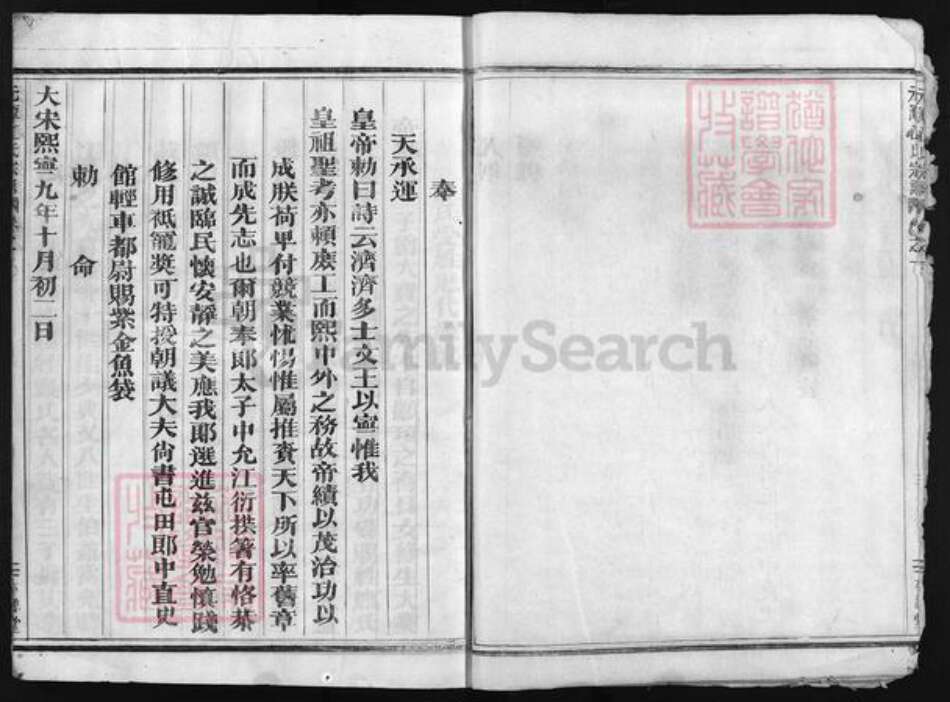 奉
天承運
皇帝勅曰詩云濟濟多士文王以寧惟我
皇祖聖考亦頼庶工而熙中外之務故帝績以茂治功以
成朕荷畀付競業怵惕惟屬推賚天下所以率舊章
而成先志也爾朝奉郎太子中允江衍拱箸有恪恭
之誠臨民懷安靜之美應我郎選進兹官榮勉慎踐
修用祗寵奬可特授朝議大夫尚書屯田郎中直史
館輕車都尉賜紫金魚袋
勅命
大宋熙寧九年十月初二日
FamilySearch